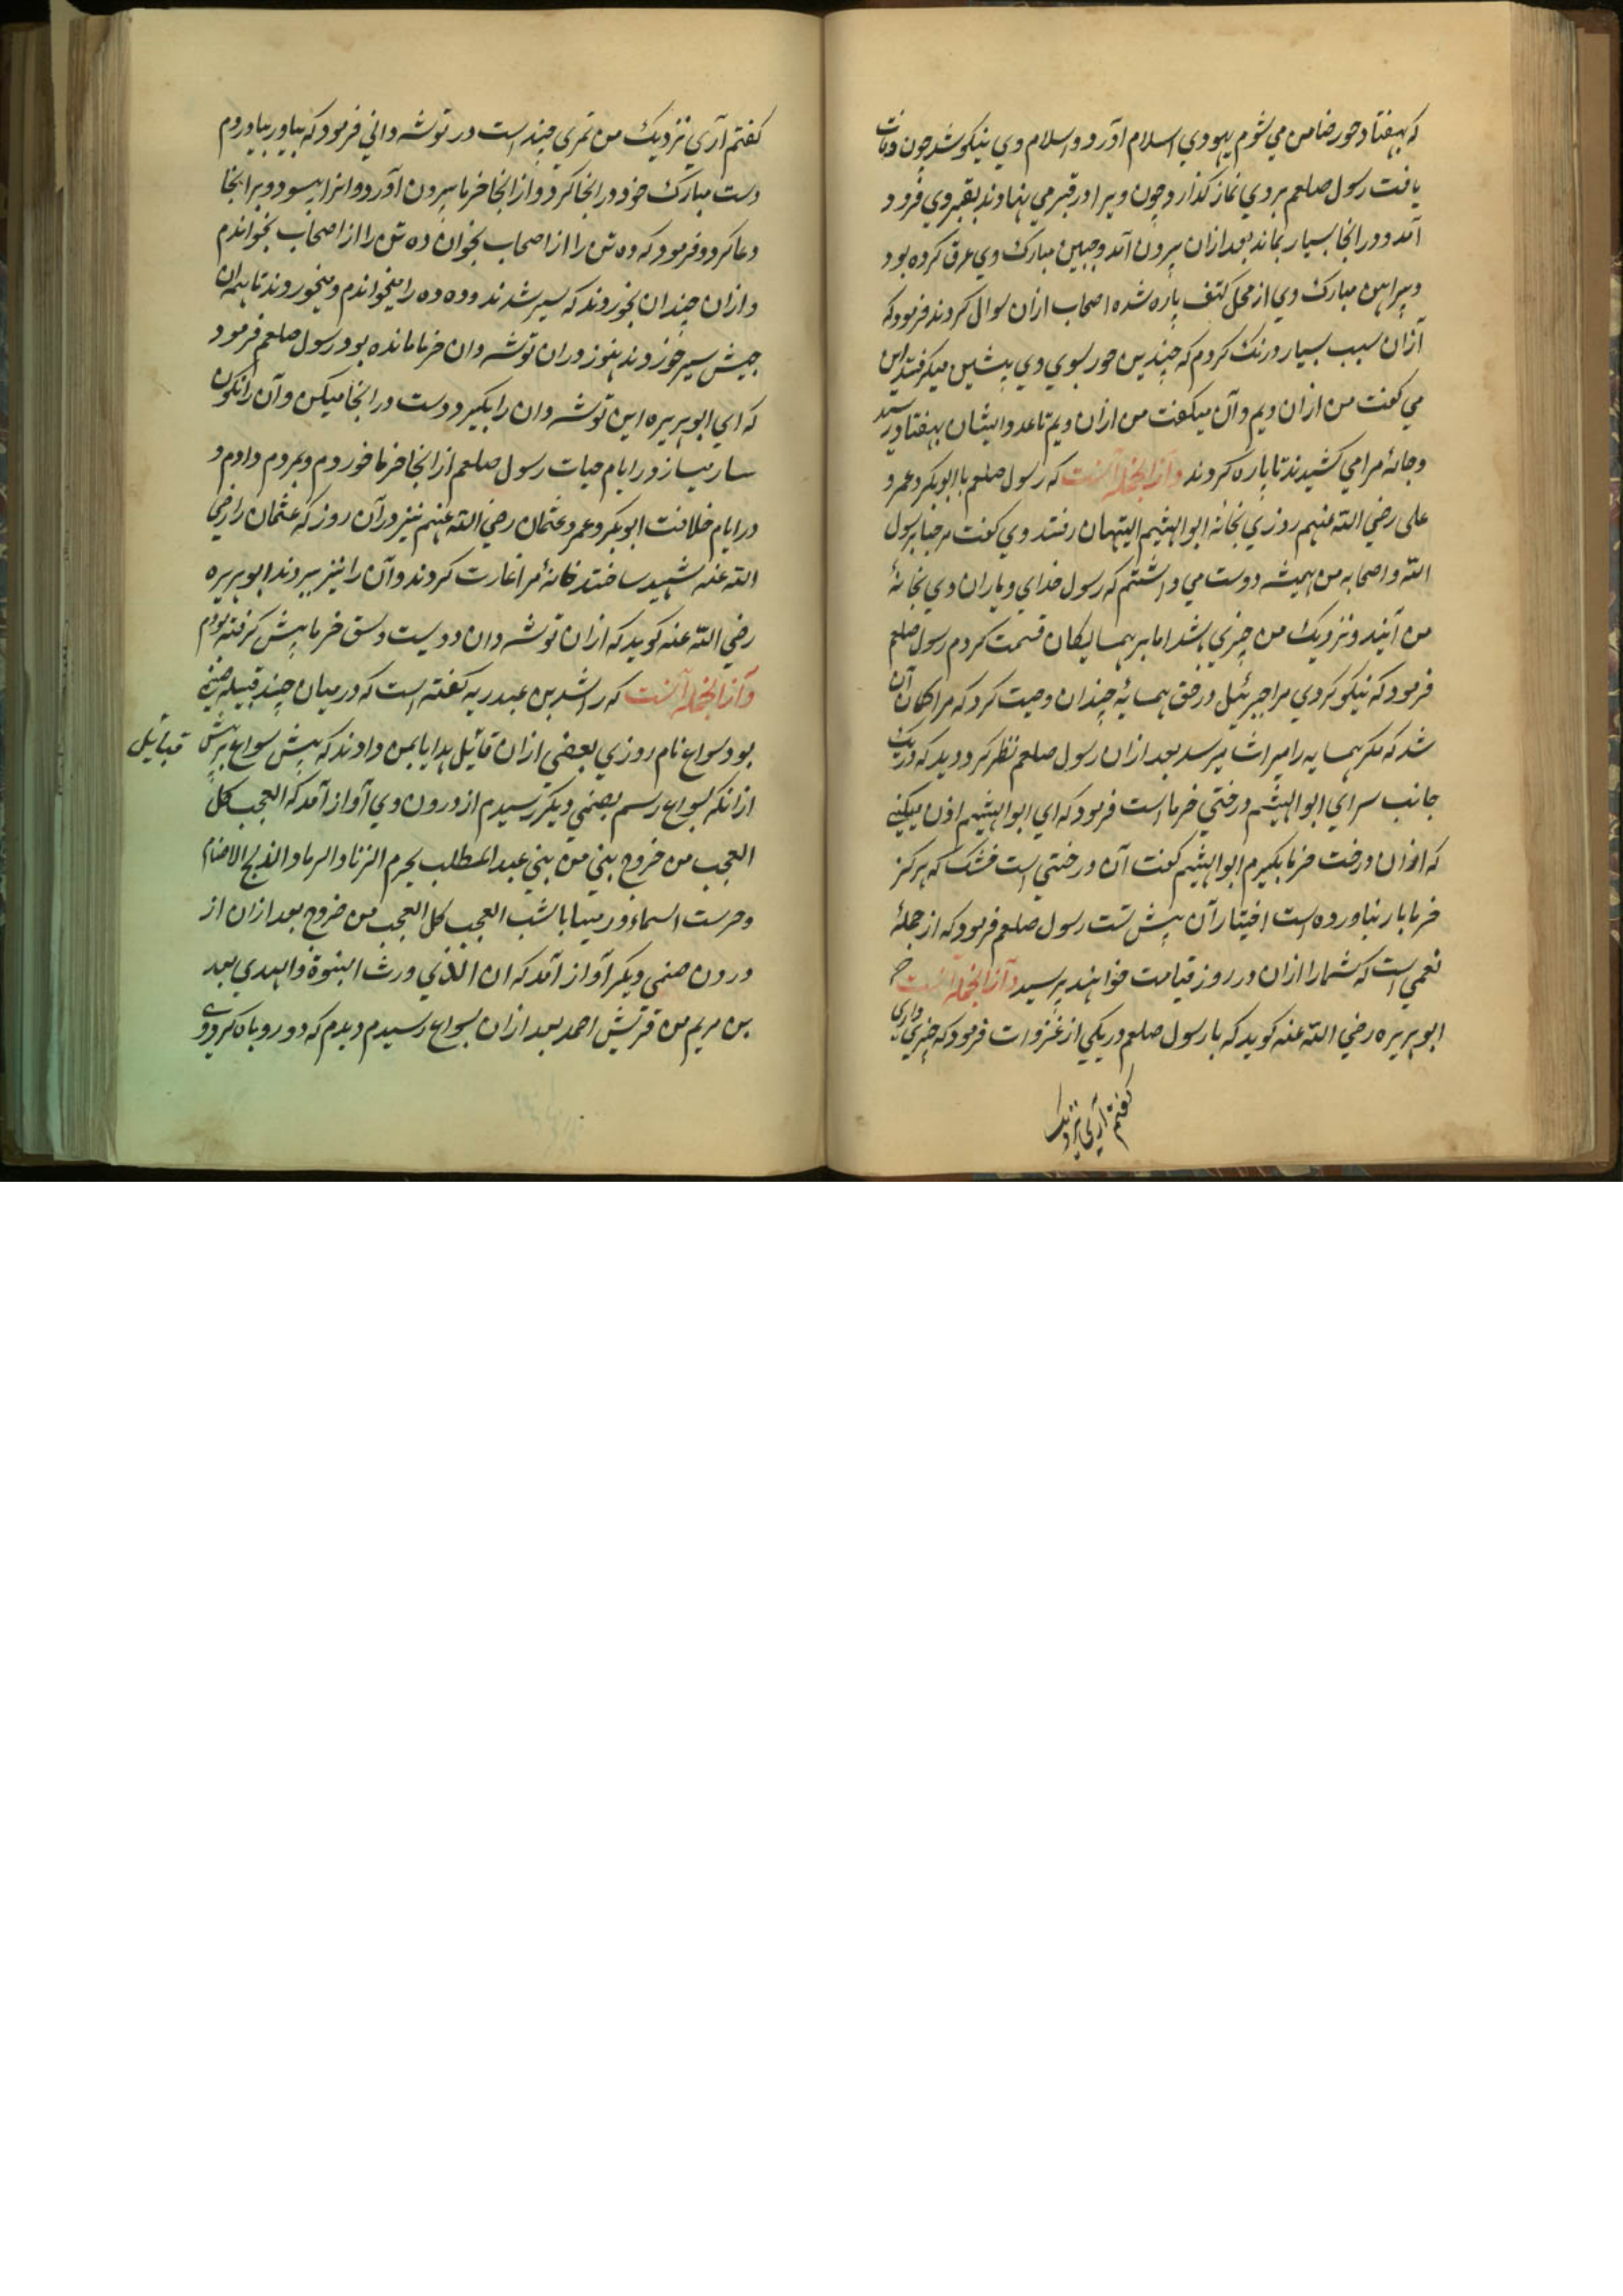 که بهفتاد حور ضامن می شوم یهودی اسلام آورد و اسلام وی نیکو شد چون وفات
یافت رسول صلعم بر وی نماز گذارد چون ویرا در قبر می نهادند بقبر وی فرود
آمد و در انجا بسیار بماند بعد ازان بیرون آمد و جبین مبارک وی عرق کرده بود
و پیراهن مبارک وی از محل کتف پاره شده اصحاب ازان سوال کردند فرمود که
ازان سبب بسیار درنک کردم که چندین حور بسوی وی پیشی میکرفتند این
می کفت من ازان ویم و آن میکفت من ازان ویم تا عدد ایشان بهفتاد رسید
و جامۀ مرا می کشیدند تا پاره کردند و از انجمله آنست که رسول صلعم با ابوبکر و عمر و
علی رضی الله عنهم روزی بخانۀ ابو الهثیم التیهان رفتند وی کفت مرحبا برسول
الله و اصحابه من همیشه دوست می داشتم که رسول خدای و یاران وی بخانۀ
من آیند و نزدیک من چیزی باشد اما بر همسایکان قسمت کردم رسول صلعم
فرمود که نیکو کردی مرا جبرئیل در حق همسایه چندان وصیت کرد که مرا کمان آن
شد که مکر همسایه را میراث میرسد بعد ازان رسول صلعم نظر کرد دید که در یک
جانب سرای ابو الهثیم درختی خرما است فرمود که ای ابو الهثیم اذن میکنی
که ازان درخت خرما بکیرم ابو الهثیم کفت آن درختی است خشک که هرکز
خرما بار نیاورده است اختیار آن پیش تست رسول صلعم فرمود که از جملۀ
نعمی است که شما را ازان در روز قیامت خواهند پرسید و از انجمله آنست
ابو هریره رضی الله عنه کوید که با رسول صلعم در یکی از غزوات فرمود که چیزی داری
کفتم آری نزدیک
کفتم آری نزدیک من تمری چند است در توشه دانی فرمود که بیاور بیاوردم
دست مبارک خود در انجا کرد و از انجا خرما بیرون آورد و انرا بسود و بر انجا
دعا کرد و فرمود که ده تن را از اصحاب بخوان ده تن را از اصحاب بخواندم
و ازان چندان بخوردند که سیر شدند و ده ده را میخواندم و میخوردند تا همه ان
جیش سیر خوردند هنوز دران توشه دان خرما مانده بود رسول صلعم فرمود
که ای ابو هریره این توشه دان را بکیر و دست در انجا میکن و آن را نکون
سار مساز در ایام حیات رسول صلعم از انجا خرما خوردم و بمردم دادم و
در ایام خلافت ابوبکر و عمر و عثمان رضی الله عنهم نیز در آن روز که عثمان را رضی
الله عنه شهید ساختند خانۀ مرا غارت کردند و آن را نیز ببردند ابو هریره
رضی الله عنه کوید که ازان توشه دان دویست وسق خرما پیش کرفته بودم
و از انجمله آنست که راشد بن عبد ربه کفته است که در میان چند قبیله صنمی
بود سواع نام روزی بعضی ازان قائیل هدایا بمن دادند که پیش سواع بر پیش
قبائیل
از انکه بسواع رسم بصنمی دیکر رسیدم از درون وی آواز آمد که العجب کل
العجب من خروج بنی من بنی عبد المطلب یحرم الزنا و الربا و الذبح الاصنام
و حرست السماء و رمینا بالشب العجب کل العجب من خروج بعد ازان از
درون صنمی دیکر آواز آمد که ان الذی ورث النبوة و الهدی بعد
بن مریم من قریش احمد بعد ازان بسواع رسیدم دیدم که دو روباه کرد وی